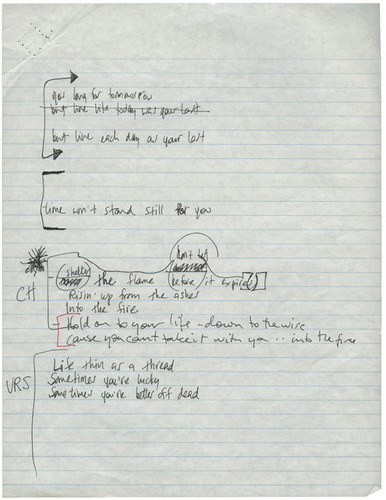 you long for tommorrow
but live life today was your last
but live each day as your last
time won't stand still for you
don't let
shelter
the flame before it expires
CH
Risin' up from the ashes
Into the fire
Hold on to your life - down to the wire
cause you can't take it with you .. into the fire
VRS
Life thin as a thread
Sometimes you're lucky
Sometimes you're better off dead